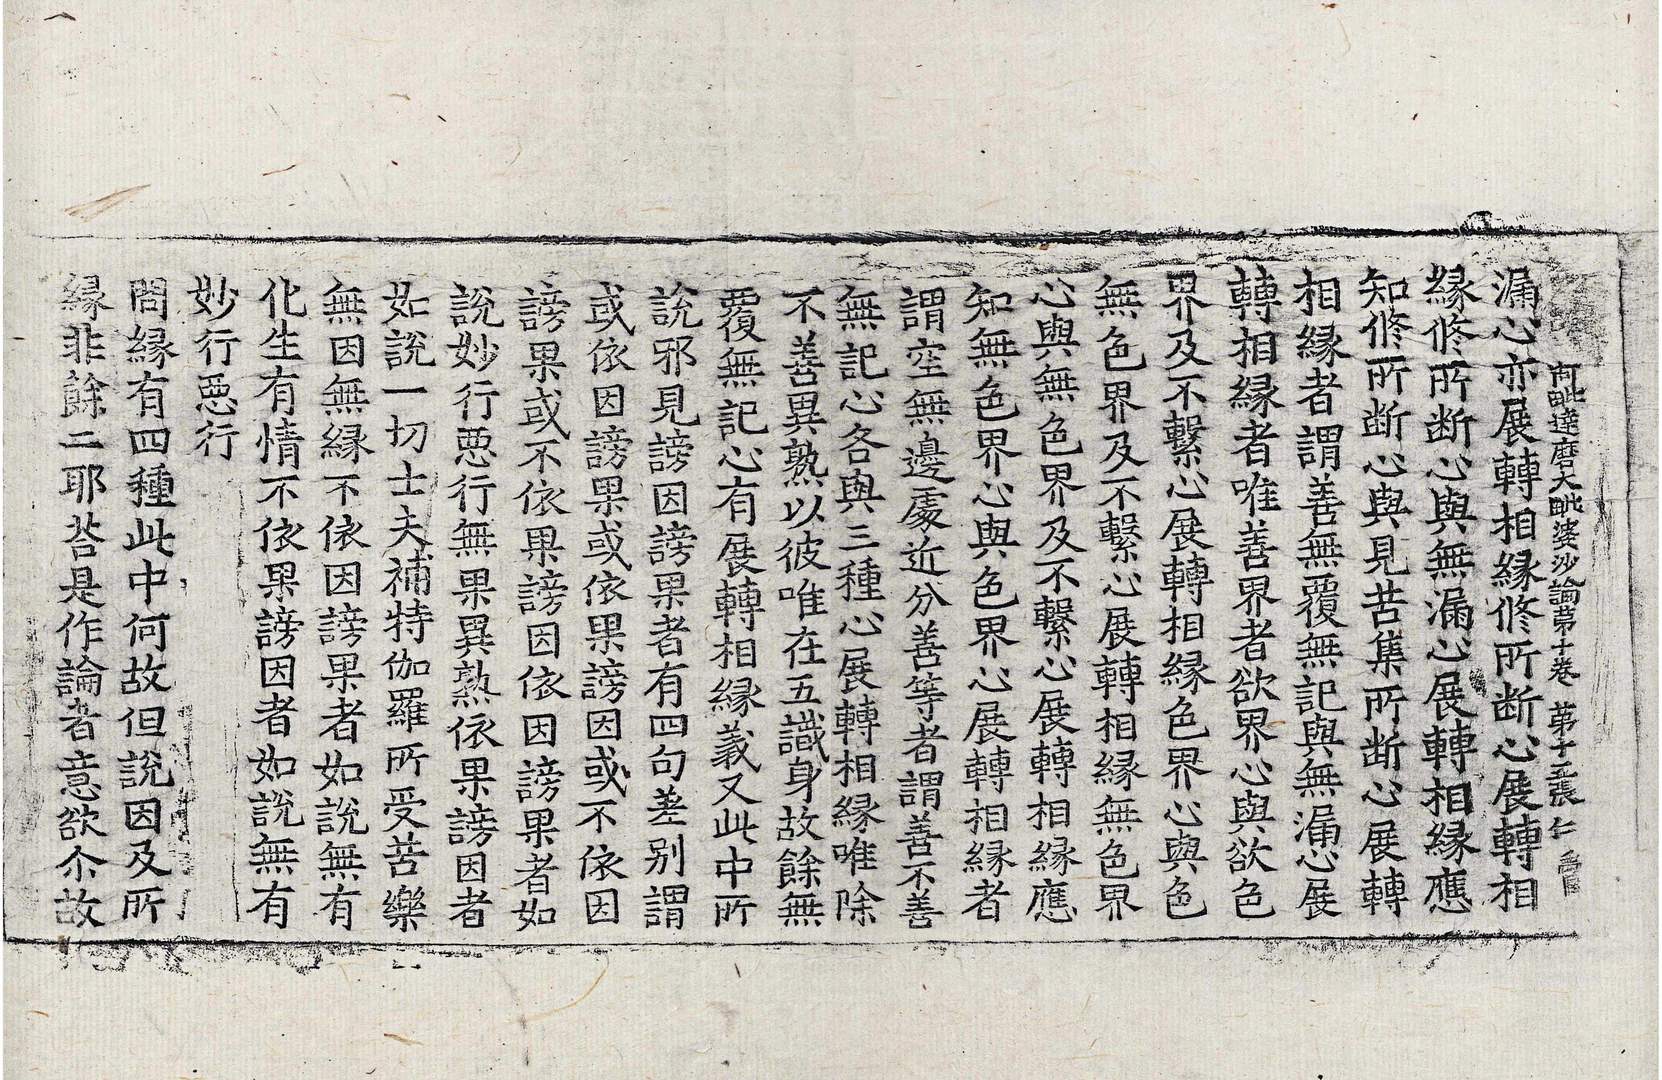 阿毗達磨大毗婆沙論苐十卷 苐十二張 仁
漏心亦展轉相緣修所断心展轉相
緣修所断心與無漏心展轉相緣應
知修所断心與見苦集所断心展轉
相緣者謂善無覆無記與無漏心展
轉相緣者唯善界者欲界心與欲色
界及不繫心展轉相緣色界心與色
無色界及不繫心展轉相緣無色界
心與無色界及不繫心展轉相緣應
知無色界心與色界心展轉相緣者
謂空無邊處近分善等者謂善不善
無記心各與三種心展轉相緣唯除
不善異熟以彼唯在五識身故餘無
覆無記心有展轉相緣義又此中所
說邪見謗因謗果者有四句差别謂
或依因謗果或依果謗因或不依因
謗果或不依果謗因依因謗果者如
說妙行惡行無果異熟依果謗因者
如說一切士夫補特伽羅所受苦樂
無因無緣不依因謗果者如說無有
化生有情不依果謗因者如說無有
妙行惡行
問緣有四種此中何故但說因及所
緣非餘二耶荅是作論者意欲尒故